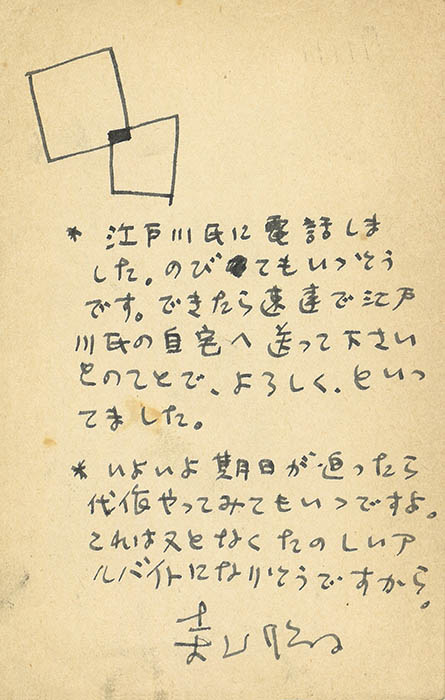 * 江戸川氏に電話しま
した。のびてもいゝそう
です。できたら速達で江戸
川氏の自宅へ送って下さい
とのことで、よろしく、といっ
てました。
* いよいよ期日が迫ったら
代作やってみてもいゝですよ。
これは又となくたのしいア
ルバイトになりそうですから。